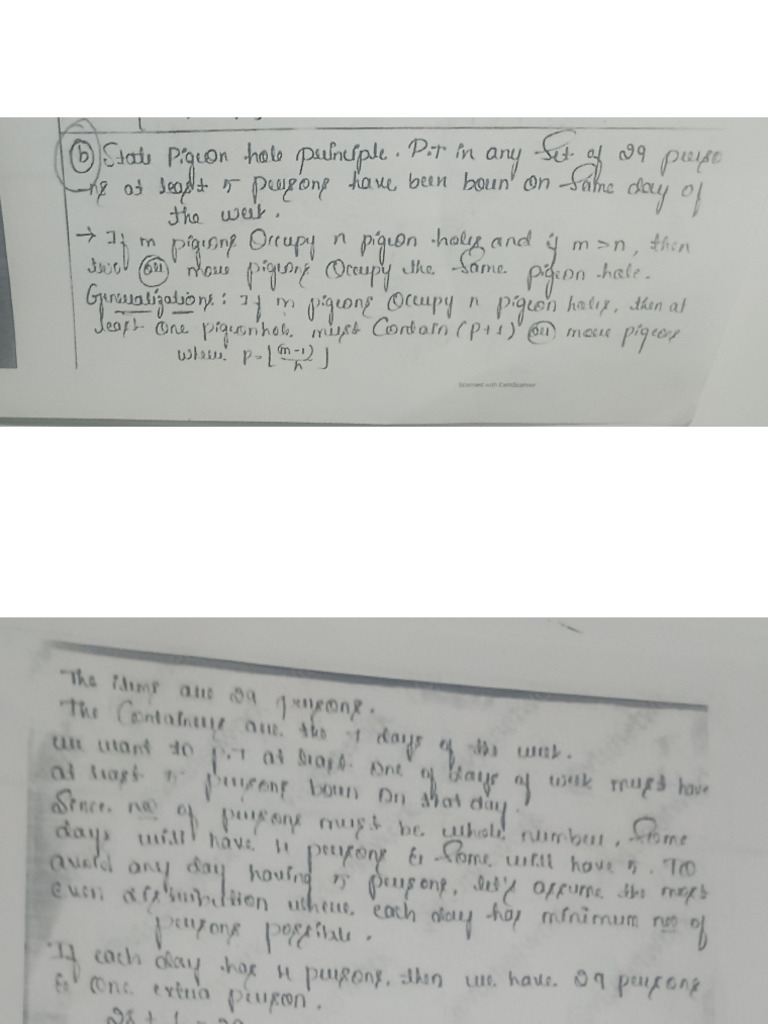 (b) State Pigeon hole principle. P.T in any Set of 29 perso
ns at least 5 persons have been born on Same day of
the week.
→ If m pigeons Occupy n pigeon holes and if m > n, then
two (or) more pigeons Occupy the Same pigeon hole.
Generalizations: If m pigeons Occupy n pigeon holes, then at
least One pigeonhole must Contain (P+1) (or) more pigeons
where P = ⌊(m-1)/n⌋
Scanned with CamScanner
The items are 29 persons.
The Containers are the 7 days of the week.
we want to P.T at least One of days of week must have
at least 5 persons born on that day.
Since no of persons must be whole number, Some
days will have 4 persons & Some will have 5. TO
avoid any day having 5 persons, let's assume the most
even distribution where each day has minimum no of
persons possible.
If each day has 4 persons, then we have 29 persons
& One extra person.
28 + 1 = 29